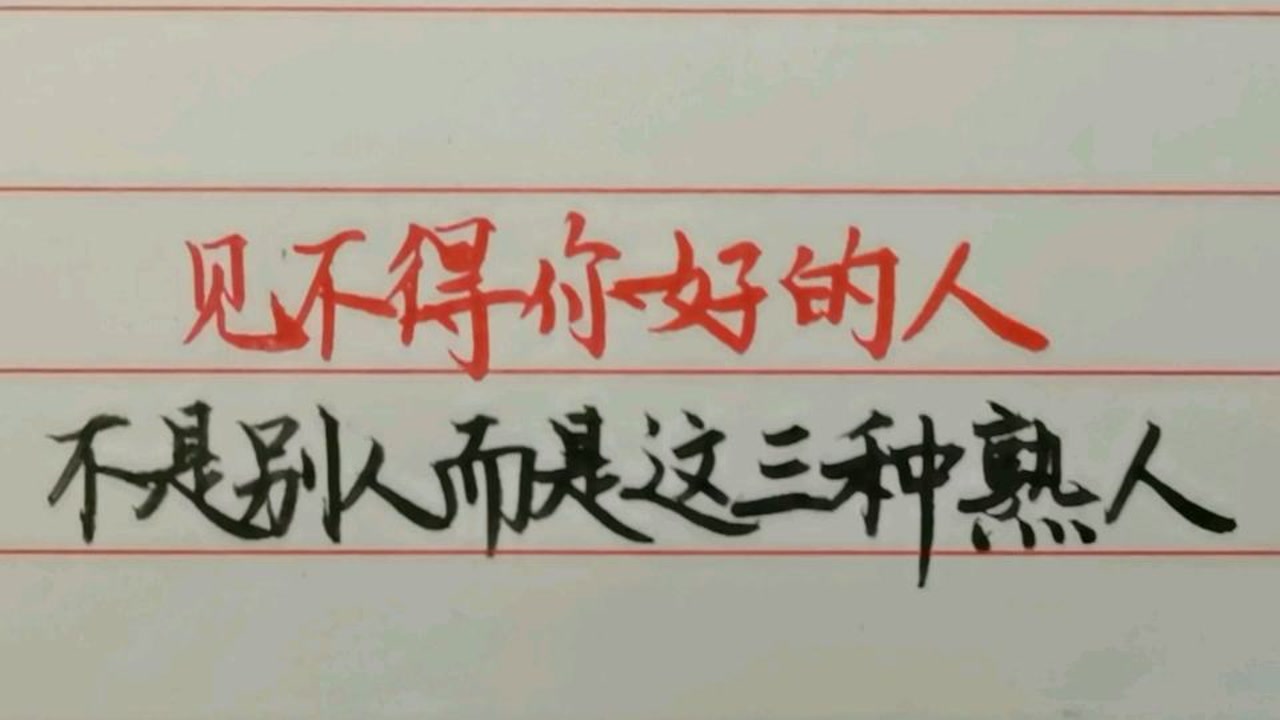 见不得你好的人
不是别人而是这三种熟人